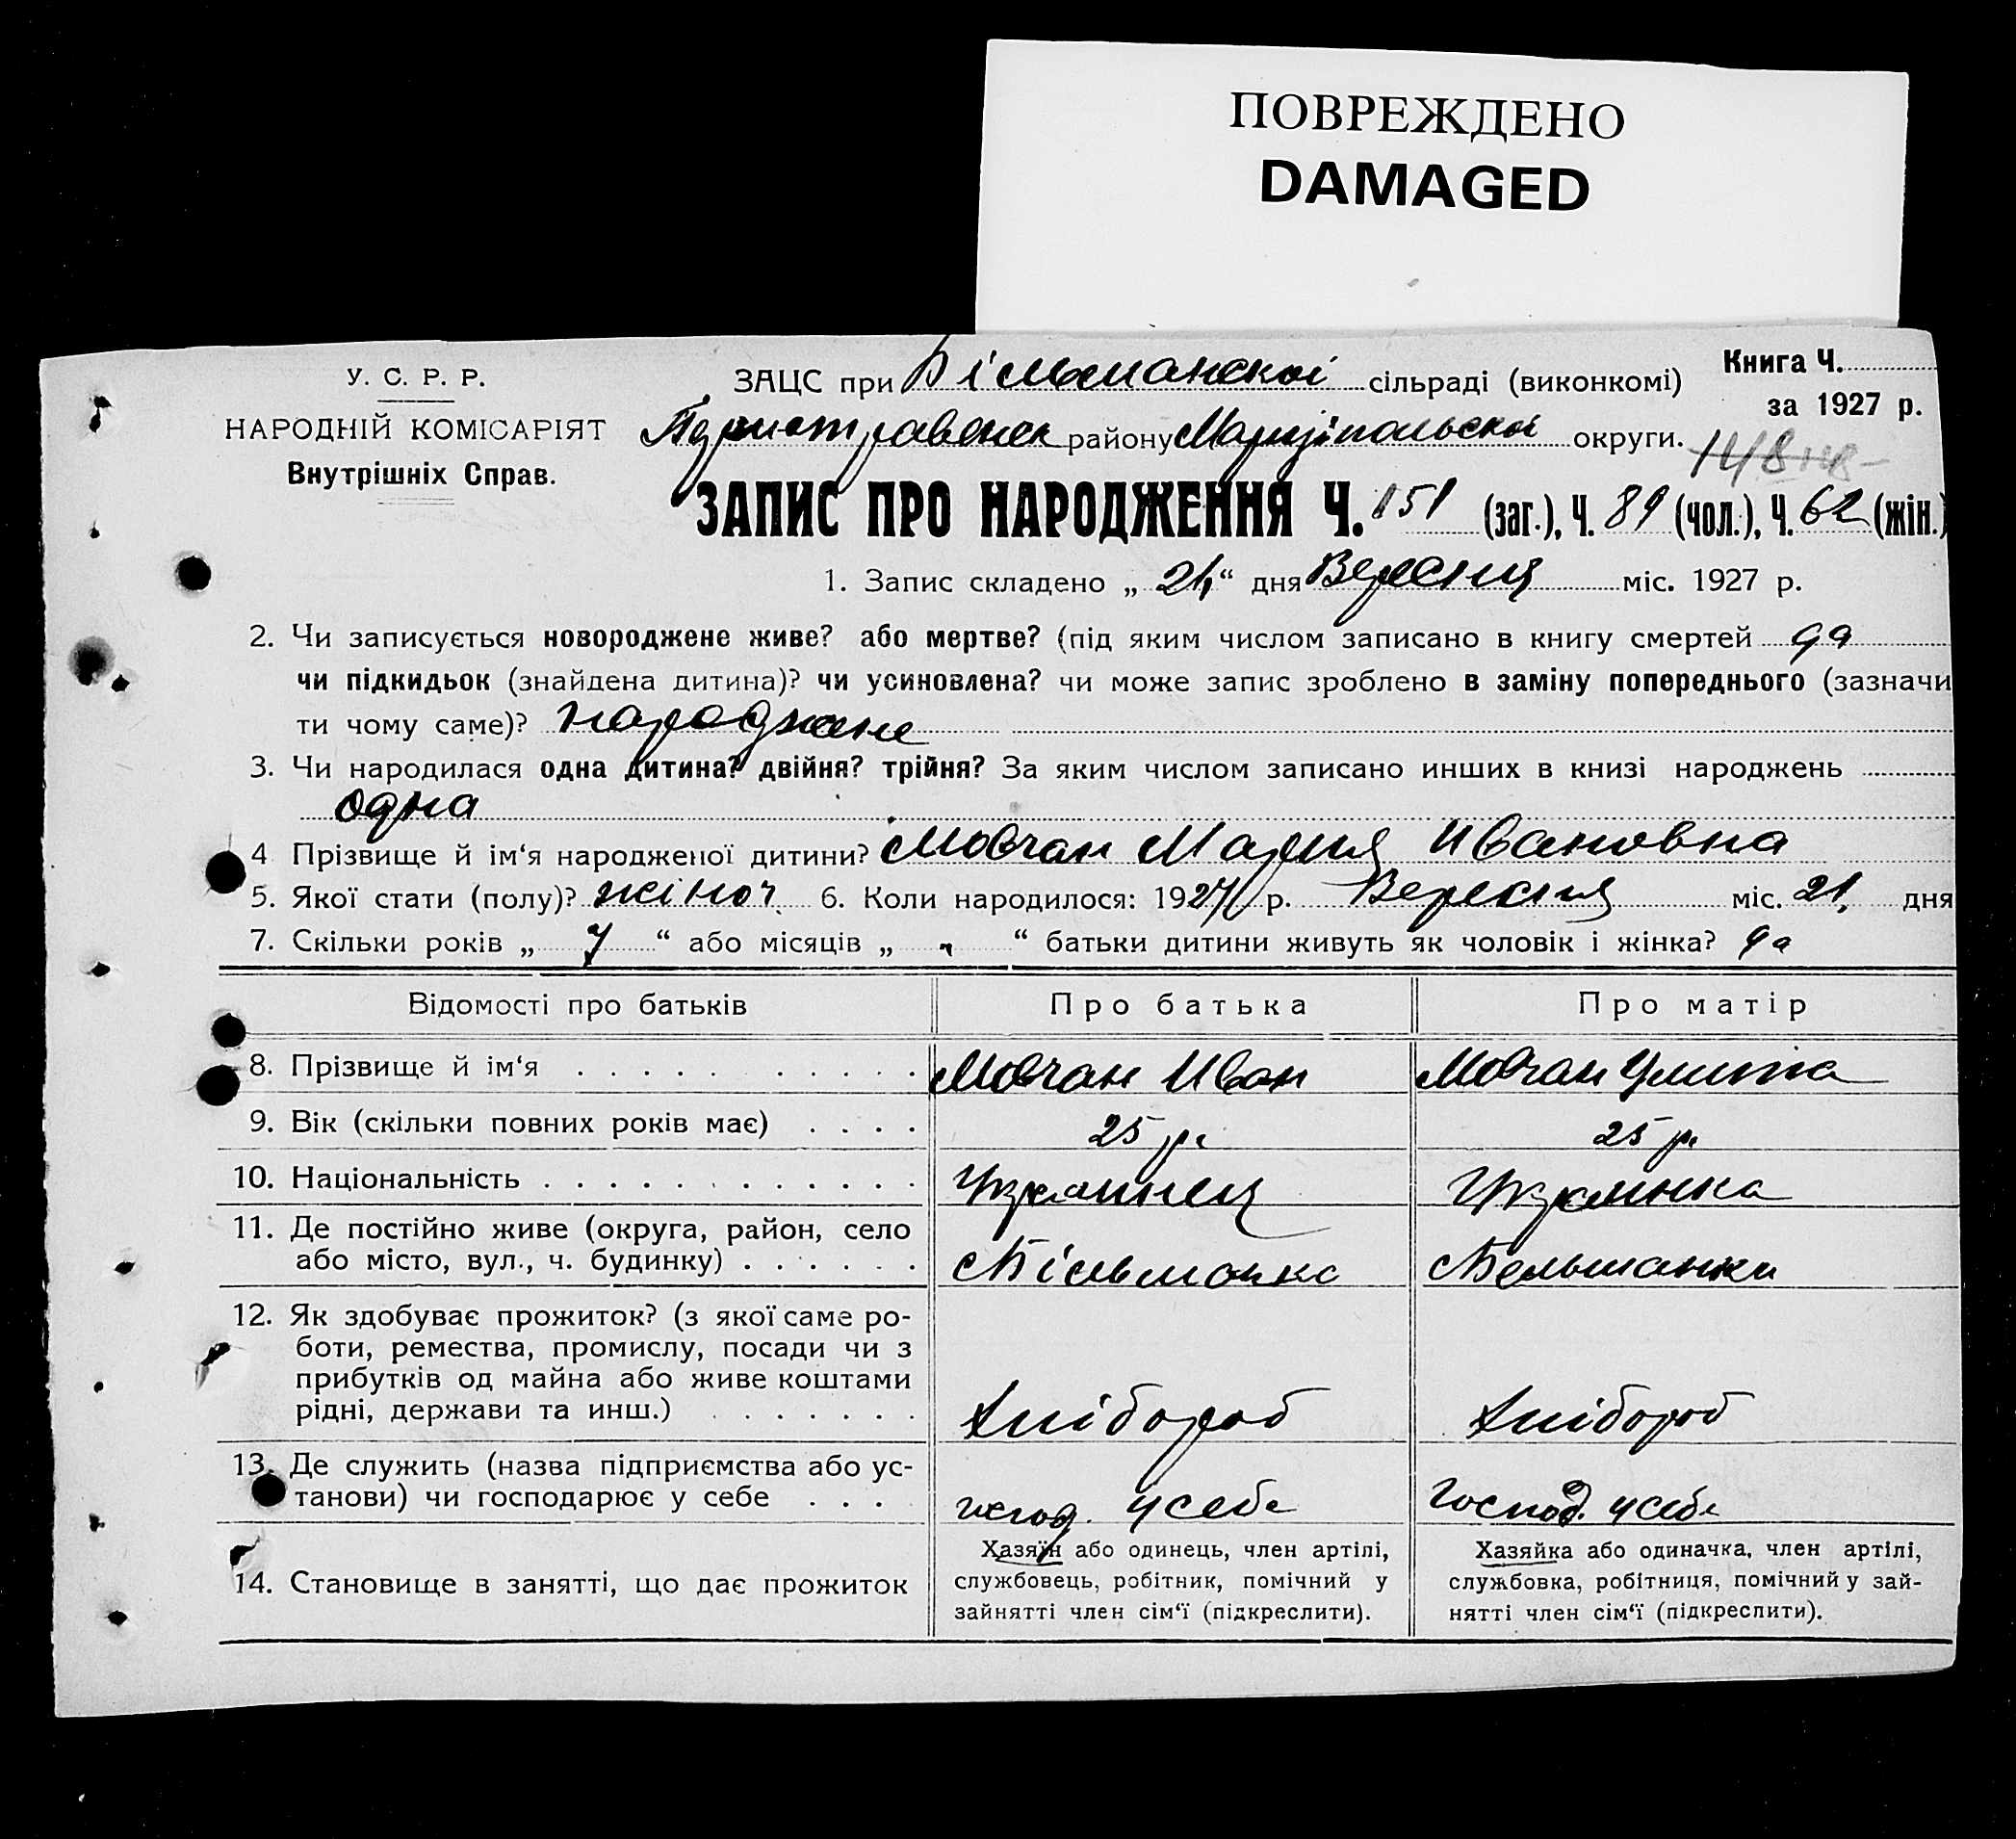 ПОВРЕЖДЕНО
DAMAGED
У. С. Р. Р.
НАРОДНІЙ КОМІСАРІЯТ
Внутрішніх Справ.
ЗАЦС при Більманскої сільраді (виконкомі)
Книга Ч.
за 1927 р.
району Маріюпольскої округи.
148
ЗАПИС ПРО НАРОДЖЕННЯ Ч. 151 (заг.), Ч. 89 (чол.), Ч. 62 (жін.)
1. Запис складено „ 21 “ дня Вересня міс. 1927 р.
2. Чи записується новороджене живе? або мертве? (під яким числом записано в книгу смертей да
чи підкидьок (знайдена дитина)? чи усиновлена? чи може запис зроблено в заміну попереднього (зазначи
ти чому саме)? народжене
3. Чи народилася одна дитина? двійня? трійня? За яким числом записано инших в книзі народжень
одна
4 Прізвище й ім‘я народженої дитини? Мовчан Мария Ивановна
5. Якої стати (полу)? жіноч. 6. Коли народилося: 1927 р. Вересня міс. 21, дня
7. Скільки років „ 7 “ або місяців „ “ батьки дитини живуть як чоловік і жінка? да
Відомості про батьків
Про батька
Про матір
8. Прізвище й ім‘я . . . . . . . . . . . Мовчан Иван Мовчан Улита
9. Вік (скільки повних років має) . . . . 25 р. 25 р.
10. Національність . . . . . . . . . . . . . Украинец Украинка
11. Де постійно живе (округа, район, село
або місто, вул., ч. будинку) . . . . . . Більманка Бельманки
12. Як здобуває прожиток? (з якої саме ро-
боти, ремества, промислу, посади чи з
прибутків од майна або живе коштами
рідні, держави та инш.) . . . . . . . Хлібороб Хлібороб
13. Де служить (назва підприємства або ус-
танови) чи господарює у себе . . . . господ. у себе Господ. у себе
14. Становище в занятті, що дає прожиток
Хазяїн або одинець, член артілі,
службовець, робітник, помічний у
зайнятті член сім‘ї (підкреслити).
Хазяйка або одиначка, член артілі,
службовка, робітниця, помічний у зай-
нятті член сім‘ї (підкреслити).